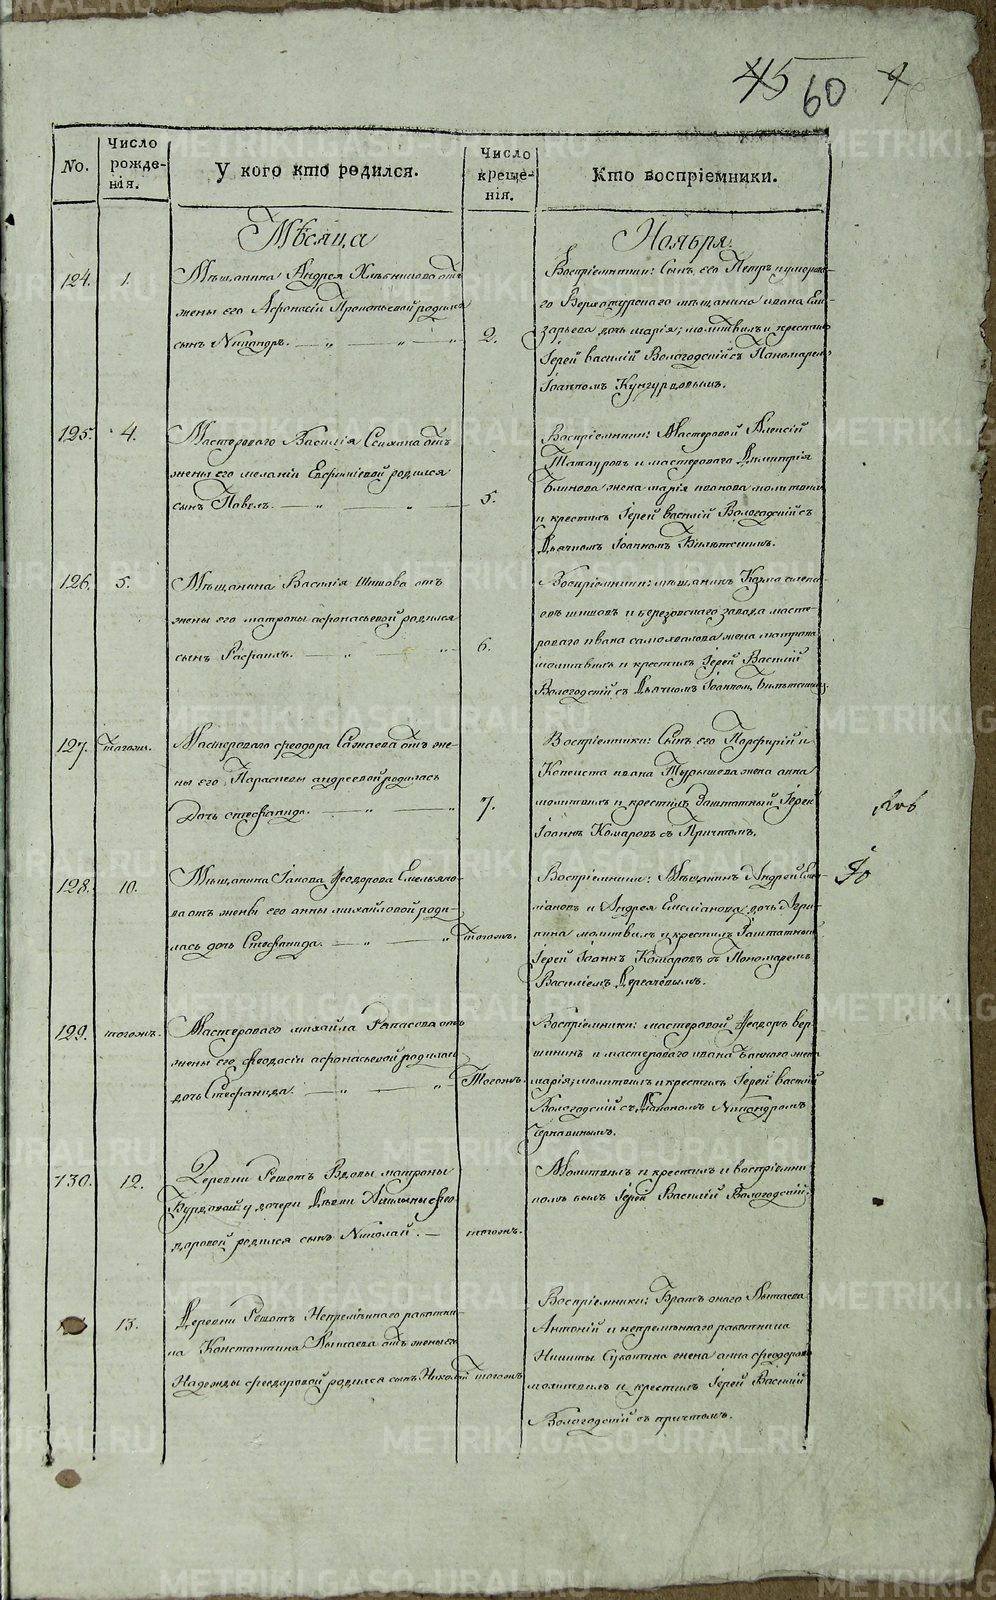 45 60
No.
Число рожде-нія.
У кого кто родился.
Число креще-нія.
Кто воспріемники.
Мѣсяца
Ноября.
124.
1.
Мѣщанина Андрея Хлѣбникова отъ
жены его Афонасіи Прокопьевой родился
сынъ Никандръ.
2.
Воспріемники: Сынъ его Петръ
го Верхотурскаго мѣщанина ивана Ели-
зарьева дочь марія; молитвилъ и крестилъ
Іерей василій Вологодскій съ Пономаремъ
Іоанномъ Кунгурцовымъ.
125.
4.
Мастероваго Василія отъ
жены его меланіи Евфиміевой родился
сынъ Павелъ.
5.
Воспріемники: Мастеровой Алексій
Татауровъ и мастероваго Димитрія
Блинова жена марія иванова молитвилъ
и крестилъ Іерей василій Вологодскій съ
Дьячкомъ Іоанномъ
126.
5.
Мѣщанина Василія Шишова отъ
жены его матроны афонасьевой родился
сынъ Рафаилъ.
6.
Воспріемники: мѣщанинъ Козма
шишовъ и березовскаго завода масте-
роваго ивана самохвалова жена матрона
молитвилъ и крестилъ Іерей Василій
Вологодскій съ Дьячкомъ Іоанном,
127.
тогожъ.
Мастероваго феодора Сажаева отъ же-
ны его Параскевы андреевой родилась
Дочь стефанида.
7.
Воспріемники: Сынъ его Порфирій и
Кописта ивана Турышева жена анна
молитвилъ и крестилъ Заштатный Іерей
Іоаннъ Комаровъ съ Причтомъ.
128.
10.
Мѣщанина Іакова Феодорова Емельяно-
ва отъ жены его анны михайловой роди-
лась дочь Стефанида.
тогожъ.
Воспріемники: Мѣщанинъ Андрей Еми-
ліановъ и Андрея Емеліанова дочь Агри-
пина молитвилъ и крестилъ Заштатный
Іерей Іоаннъ Комаровъ съ Пономаремъ
Василіемъ Дергачовымъ.
129.
тогожъ.
Мастероваго михайла Рѣпасова отъ
жены его феодосіи афонасьевой родилась
дочь Стефанида.
Тогожъ.
Воспріемники: мастеровой Феодоръ вер-
шининъ и мастероваго ивана жена
марія; молитвилъ и крестилъ Іерей василій
Вологодскій съ Діакономъ Никандромъ
Чернавинымъ.
130.
12.
Деревни Решотъ Вдовы матроны
у дочери Дѣвки Акилины фео-
доровой родился сынъ Николай.
тогожъ.
Молитвилъ и крестилъ и воспріемни-
комъ былъ Іерей Василій Вологодскій.
13.
Деревни Решотъ Непремѣннаго работни-
ка Константина Пытаева отъ жены его
Надежды феодоровой родился сынъ Николай
тогожъ
Воспріемники: Братъ онаго Пытаева
Антоній и непремѣннаго работника
Никиты Субботина жена анна феодорова
молитвилъ и крестилъ Іерей Василій
Вологодскій съ причтомъ.
METRIKI.GASO-URAL.RU